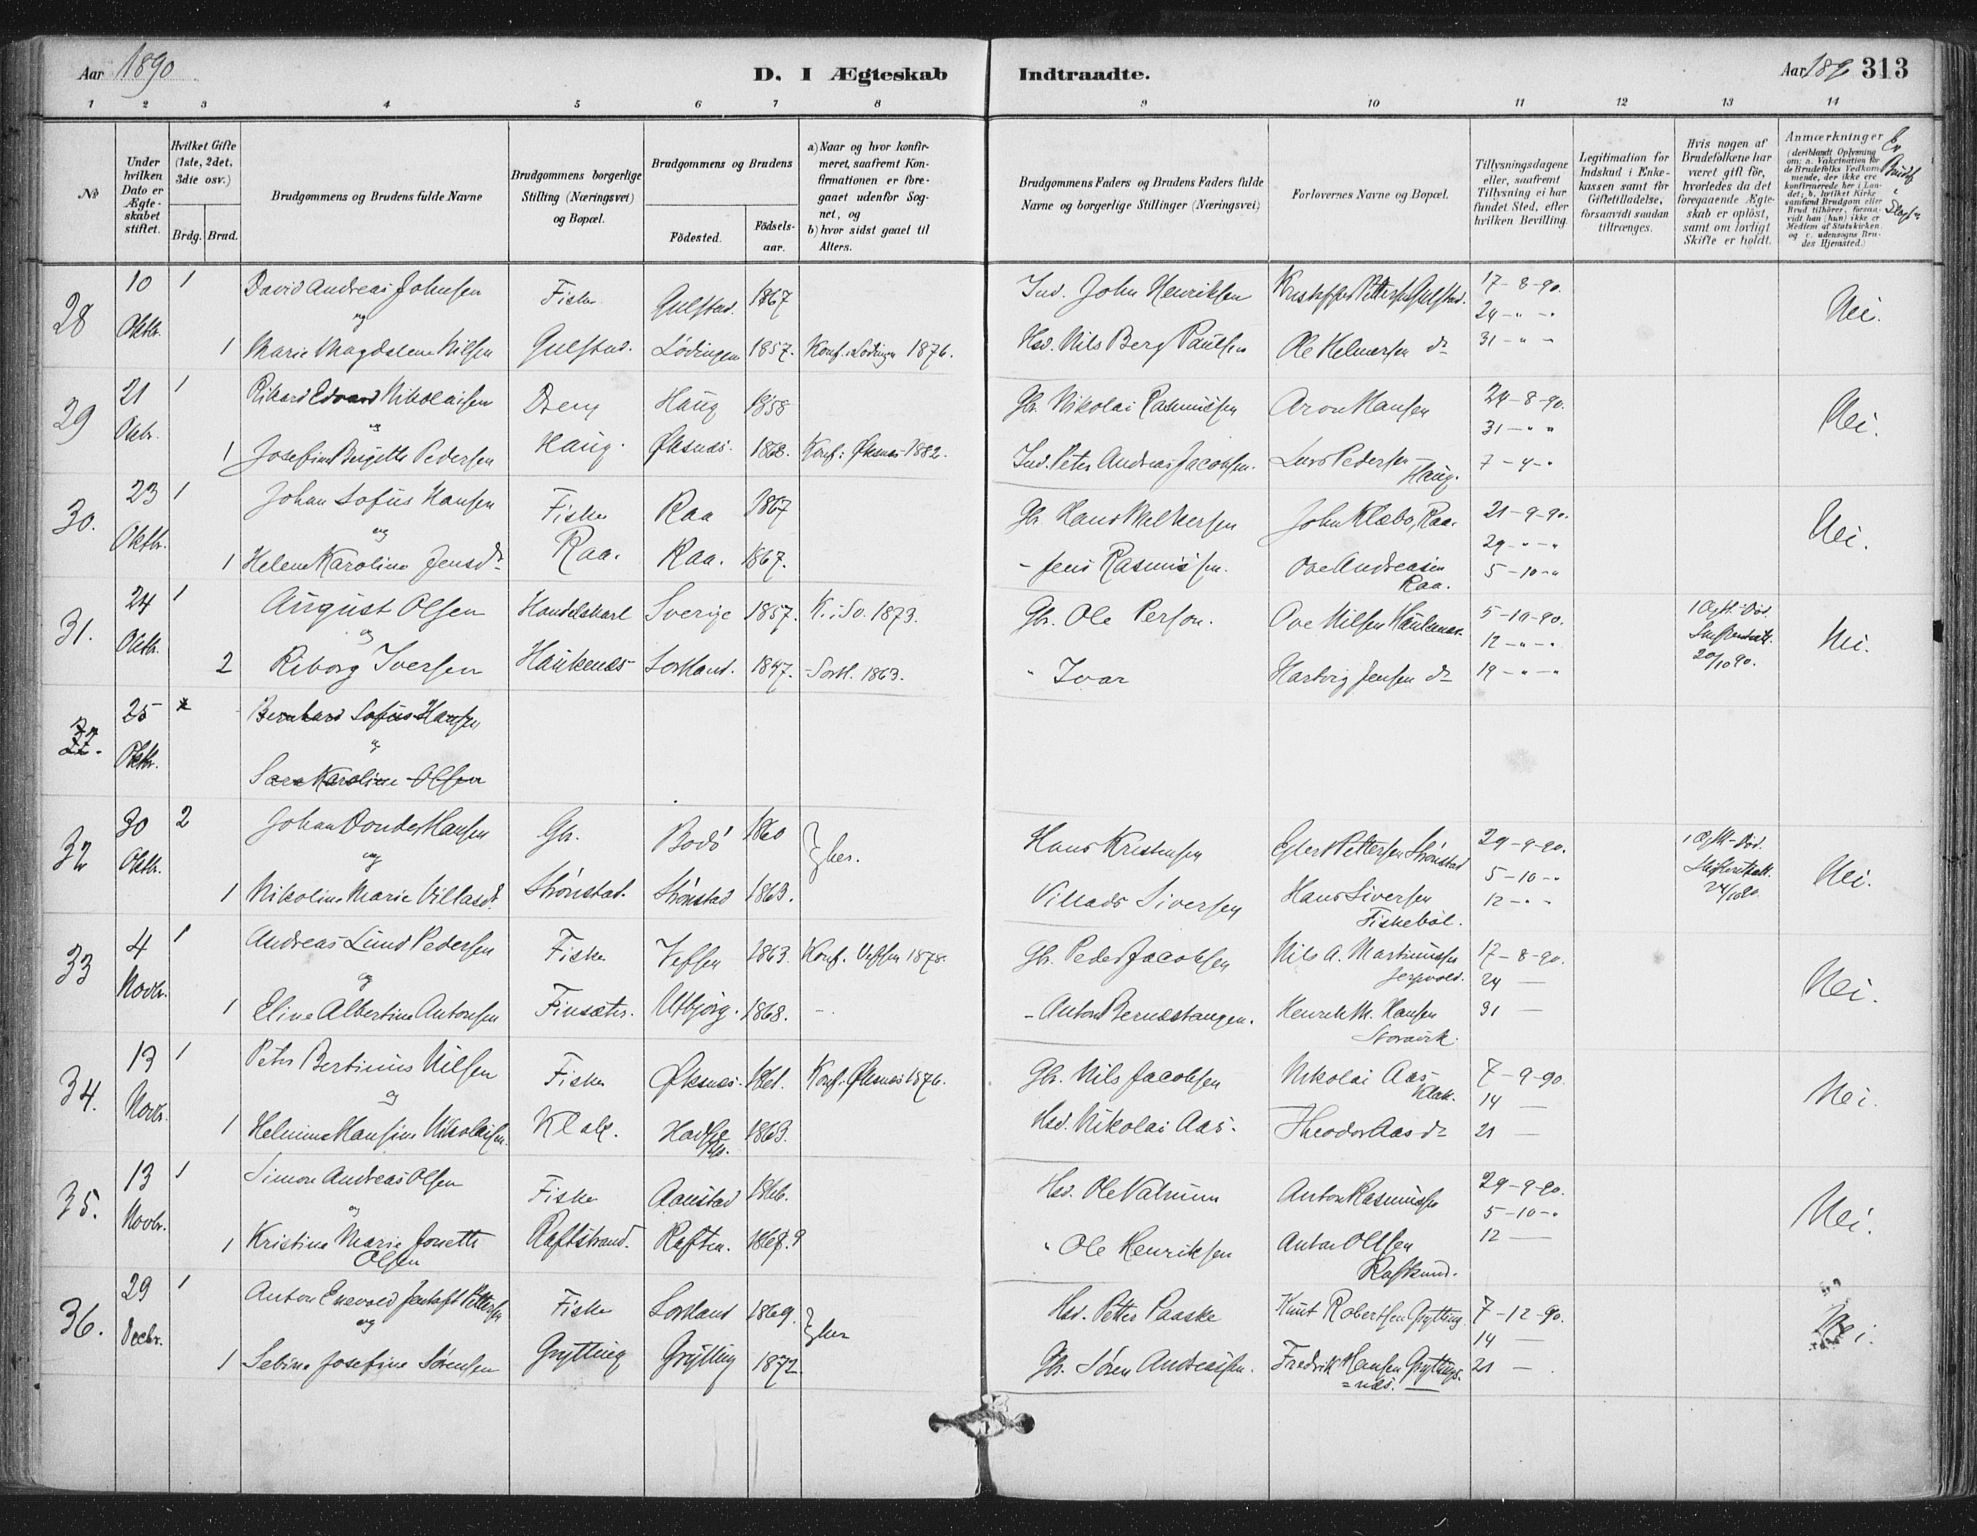 Aar 1890
D. I Ægteskab Indtraadte.
Aar 18 313
1 2 3 4 5 6 7 8 9 10 11 12 13 14
№
Under hvilken Dato er Ægteskabet stiftet.
Hvilket Gifte (1ste, 2det, 3die osv.)
Brdg. Brud.
Brudgommens og Brudens fulde Navne
Brudgommens borgerlige Stilling (Næringsvei) og Bopæl.
Brudgommens og Brudens
Födested. Födselsaar.
a) Naar og hvor konfirmeret, saafremt Konfirmationen er foregaaet udenfor Sognet, og
b) hvor sidst gaaet til Alters.
Brudgommens Faders og Brudens Faders fulde Navne og borgerlige Stillinger (Næringsvei)
Forlovernes Navne og Bopæl.
Tillysningsdagene eller, saafremt Tillysning ei har fundet Sted, efter hvilken Bevilling
Legitimation for Indskud i Enkekassen samt for Giftetilladelse, forsaavidt saadan tiltrænges.
Hvis nogen af Brudefolkene har været gift för, hvorledes da det foregaaende Ægteskab er oplöst, samt om lovligt Skifte er holdt.
Anmærkninger (deriblandt Oplysning om: a. Vakcination for de Brudefolks Vedkommende, der ikke ere konfirmerede her i Landet; b. hvilket Kirkesamfund Brudgom eller Brud tilhörer, forsaavidt han (hun) ikke er Medlem af Statskirken, og c. udensogns Brudes Hjemsted.)
28 10 Oktbr. 1 David Andreas Johnsen Fisker Gulstad. 1867 Ind. John Henriksen Kristoffer Pettersen Gulstad. 17-8-90.
og 24 - " - Nei.
1 Marie Magdalene Nilsen Gulstad. Lødingen 1857. Konf. i Lødingen 1876. Hsd. Nils Berg Paulsen Ole Helmersen do 31 - " -
29 21 Okbr. 1 Rikard Edvard Nikolaisen Dreng Haug 1858 Gbr. Nikolai Rasmussen Aron Hansen 24-8-90.
og 31 - " " Nei.
1 Josefine Birgitte Pedersen Haug. Øksnes. 1868. Konf. i Øksnes 1882. Ind. Peter Andreas Jacobsen. Lars Pedersen Haug. 7 - 9 - "
30. 23 Oktbr. 1 Johan Sofus Hansen Fisker Raa 1867 Gbr Hans John Klæbo, Raa. 21-9-90.
og 29 - " - " Nei.
1 Helene Karoline Jensdr. Raa. Raa. 1867. - Jens Rasmussen. Ove Andreasen Raa. 5-10-"
31. 24 Oktbr. 1 August Olsen Handelskarl Sverige 1857. K. i Sv. 1873. Gbr. Ole Person. Ove Nilsen Haukenes. 5-10-90. 1 Ægt. Død.
og 12 - " - " Nei.
2 Riborg Iversen Haukenes Sortland. 1847. - Sortl. 1863. " Ivar Hartvig Jensen do 19 - " - " 20/10 90.
32. 25 Oktbr. Bernhard Sofus Hansen
og
Sara Karoline Olsen
32 30 Oktbr. 2 Johan Hansen Gbr. Bodø 1860 her. Hans Kristensen Egbert Pettersen Strønstad 29-9-90. 1 Ægt. Død.
og 5-10-" Nei.
1 Nikoline Marie Villasdr. Strønstad. Strønstad 1863. Villads Siversen Hans Siversen Fiskebøl. 12 - " - 24/10 90.
33 4 Novbr. 1 Andreas Lund Pedersen Fisker Vefsen 1863. Konf. Vefsen 1878. Gbr. Peder Jacobsen Nils A. Martinussen 17-8-90.
og 24 — Nei.
1 Eline Albertine Antonsen Finsæter. Utbjørg. 1868. - Anton Bernæstangen. Henrik M. Hansen Storvik. 31 —
34. 13 Novbr. 1 Peter Bertinius Nilsen Fisker Øksnes. 1861. Konf. i Øksnes 1876. Gbr. Nils Jacobsen Nikolai Aas Klak. 7-9-90.
og 14 — Nei.
1 Helmine Hansine Nikolaisen. Klak. Hadsel 1863. Hsd. Nikolai Aas. Theodor Aas do 21 —
35. 13 Novbr. 1 Simon Andreas Olsen Fisker Aanstad 1866. Hsd. Ole Anton Rasmussen 29-9-90.
og 5-10-" Nei.
1 Kristine Marie Jonette Olsen Raftstrand. Raften. " Ole Henriksen Anton Olsen Raftsund. 12 —
36. 29 Decbr. 1 Anton Enevold Jentoft Pettersen Fisker Sortland 1869. her Hsd. Petter Paaske Knut Robertsen Grytting. 7-12-90.
og 14 — Nei.
1 Sebine Josefine Sørensen Grytting Grytting 1872. Gbr. Søren Andreassen. Fredrik Hansen Gryttings=næs. 21 —